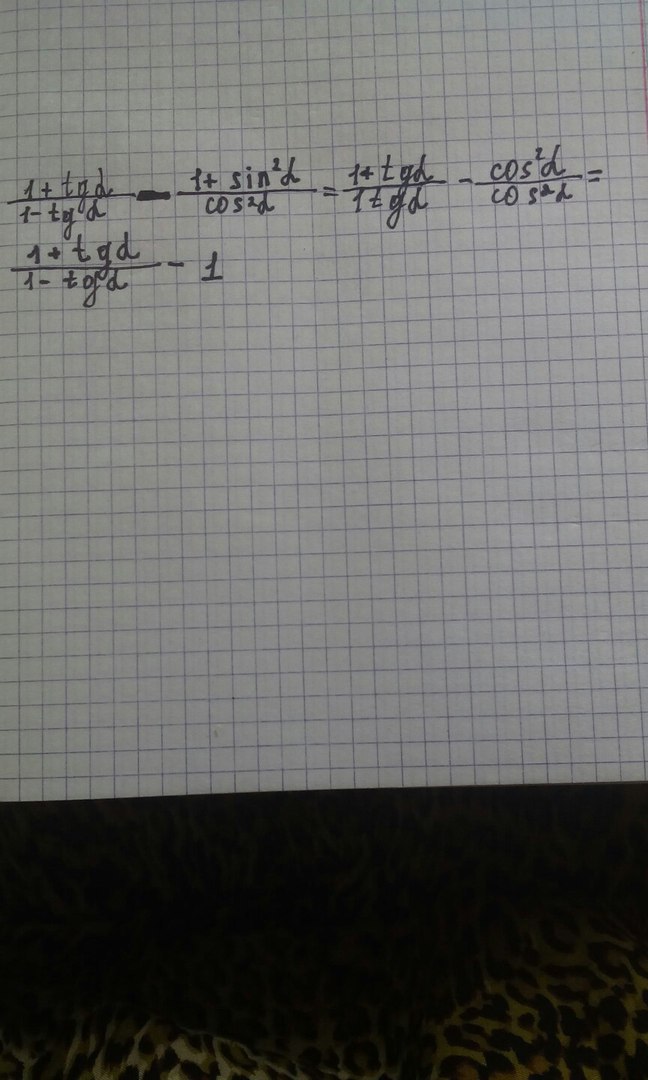 (1 + tgα)/(1 - tgα) - (1 + sin²α)/(cos²α) = (1 + tgα)/(1 tgα) - (cos²α)/(cos²α) =
(1 + tgα)/(1 - tgα) - 1